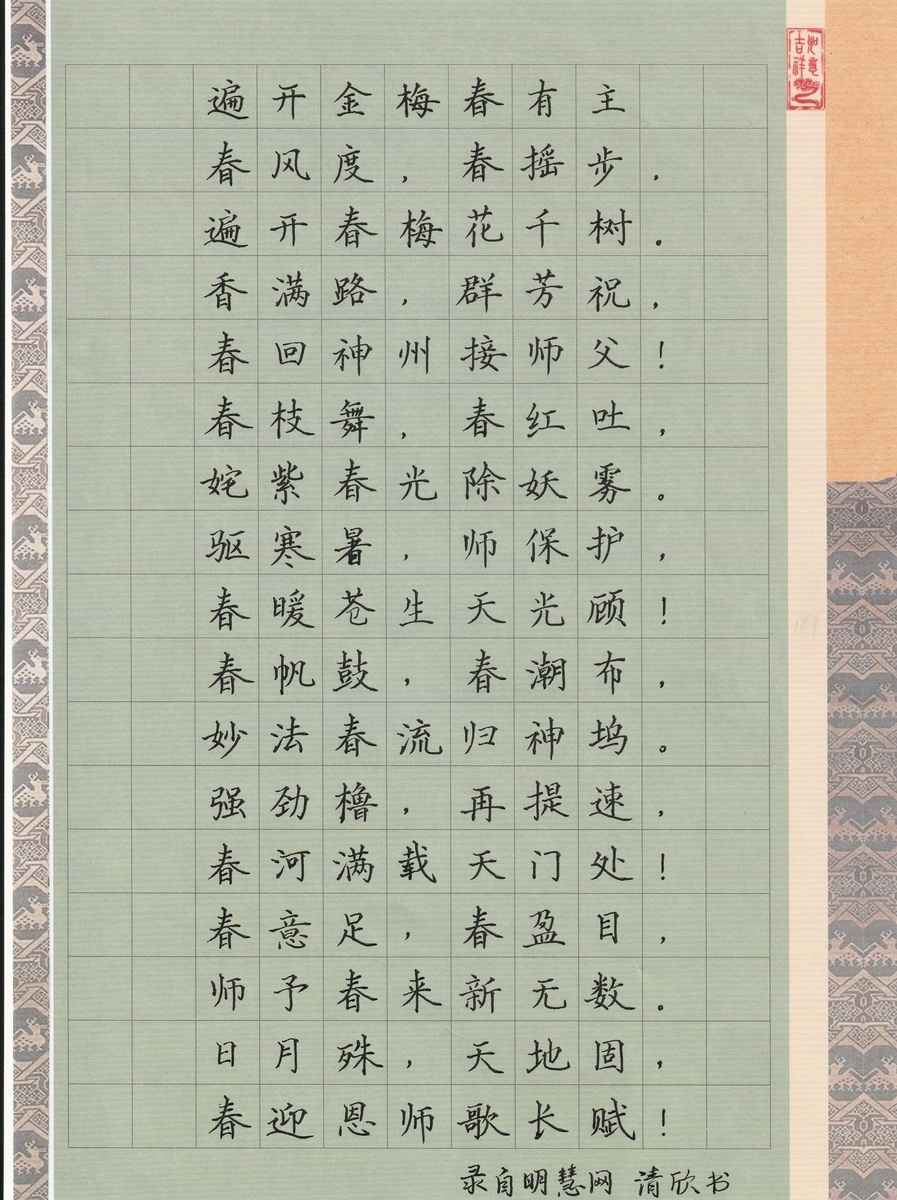 如意
吉祥
遍开金梅春有主
春风度，春摇步，
遍开春梅花千树。
香满路，群芳祝，
春回神州接师父！
春枝舞，春红吐，
姹紫春光除妖雾。
驱寒暑，师保护，
春暖苍生天光顾！
春帆鼓，春潮布，
妙法春流归神坞。
强劲橹，再提速，
春河满载天门处！
春意足，春盈目，
师予春来新无数。
日月殊，天地固，
春迎恩师歌长赋！
录自明慧网 清欣书